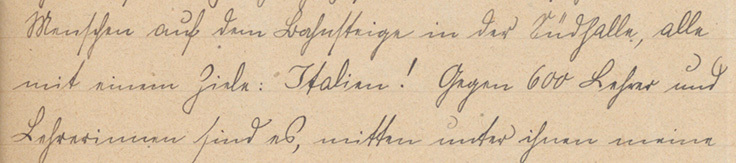 Menschen auf dem Bahnsteige in der Südhalle, alle
mit einem Ziele: Italien! Gegen 600 Lehrer und
Lehrerinnen sind es, mitten unter ihnen meine